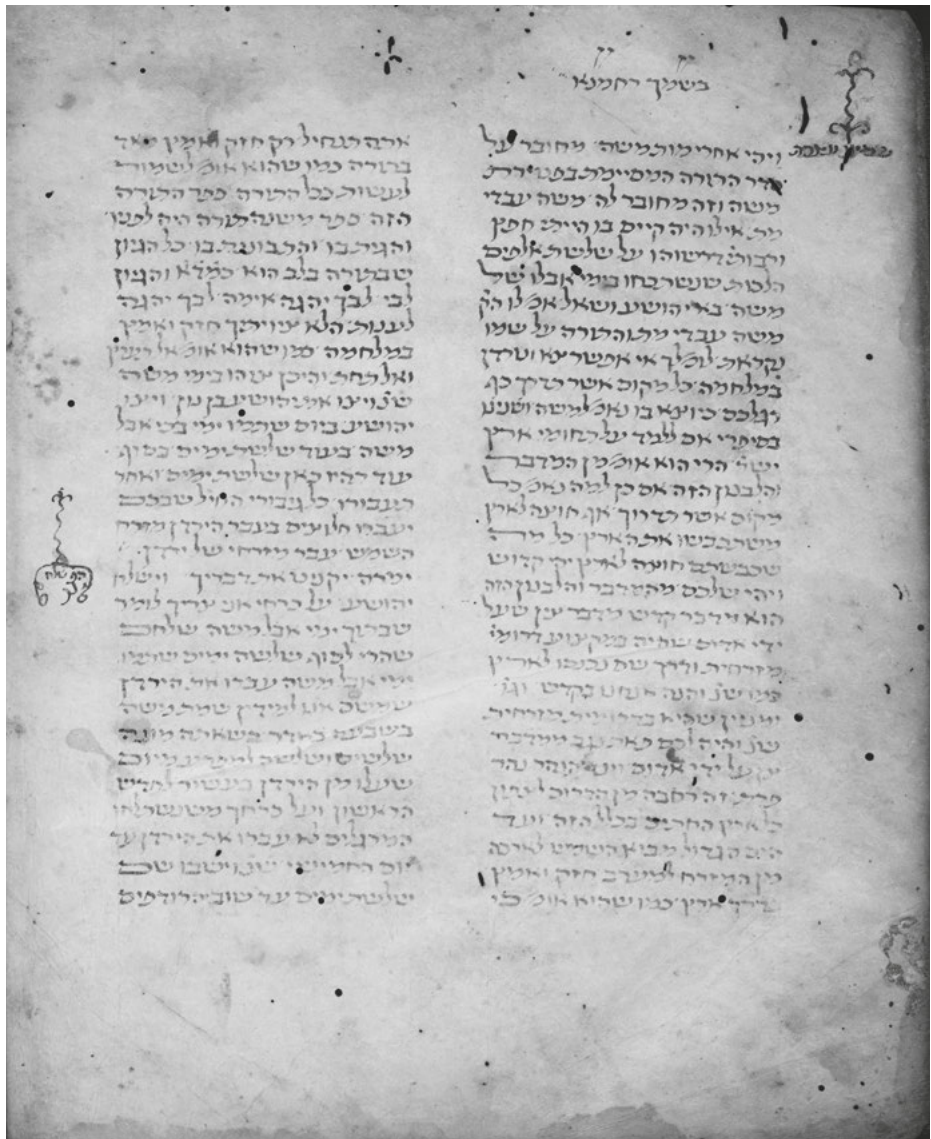 בשמך רחמנא
ויהי אחרי מות משה מחובר על
סדר התורה המסיימת בפטירת
משה וזה מחובר לה משה עבדי
מת אילו היה קיים בו הייתי חפץ
ורבותינו דרשוהו על שלשת אלפים
הלכות שנשתכחו בימי אבלו של
משה בא יהושע ושאל אמ' לו הק'
משה עבדי מת והתורה על שמו
נקראת לומ' לך אי אפשר צא וטרדן
במלחמה כל מקום אשר תדרך כף
רגלכם כיוצא בו נאמ' למשה ושנינו
בסיפרי אם ללמד על תחומי ארץ
ישר' הרי הוא אומ' מן המדבר
והלבנון הזה אם כן למה נאמ' כל
מקום אשר תדרוך אף חוצה לארץ
משתכבשו את הארץ כל מה
שכבשתם חוצה לארץ יהי קדוש
ויהי שלכם מהמדבר והלבנון הזה
הוא מדבר קדש מדבר צין שעל
ידי אדום שהיה במקצוע דרומי
מזרחית ודרך שם נכנסו לארץ
כמו שנ' והנה אנחנו בקדש וגו'
ומניין שהיא בדרומית מזרחית
שנ' והיה לכם פאת נגב ממדבר
צין על ידי אדום ועד הנהר נהר
פרת זה רחבה מן הדרום לצפון
כל ארץ החתים בכלל הזה ועד
הים הגדול מבוא השמש לארכה
מן המזרח למערב חזק ואמץ
בדרך ארץ כמו שהוא אומ' כי
אתה תנחיל רק חזק ואמץ מאד
בתורה כמו שהוא אומ' לשמור
לעשות ככל התורה ספר התורה
הזה ספר משנה תורה היה לפניו
והגית בו והתבוננת בו כל הגיון
שבתורה בלב הוא כמד'א והגיון
לבי לבך יהגה אימה לבך יהגה
לענות הלא צויתיך חזק ואמץ
במלחמה כמו שהוא אומ' אל תערץ
ואל תחת והיכן צוהו בימי משה
שנ' ויצו את יהושע בן נון ויצו
יהושע ביום שתמו ימי בכי אבל
משה בעוד שלשת ימים בסוף
עוד תהיו כאן שלשת ימים ואחר
תעבורו כל גיבורי החיל שבכם
יעברו חלוצים בעבר הירדן מזרח
השמש עבר מזרחי של ירדן
ימרה יקניט את דבריך וישלח
יהושע על כרחי אני צריך לומר
שבתוך ימי אבל משה שלחם
שהרי לסוף שלשה ימים שתמו
ימי אבל משה עברו את הירדן
שמשם אנו למידין שמת משה
בשבעה באדר כשאתה מונה
שלשים ושלשה למפריע מיום
שעלו מן הירדן בעשור לחדש
הראשון ועל כרחך משנשתלחו
המרגלים לא עברו את הירדן עד
יום החמישי שנ' וישבו שם
שלשת ימים עד שוב הרודפים